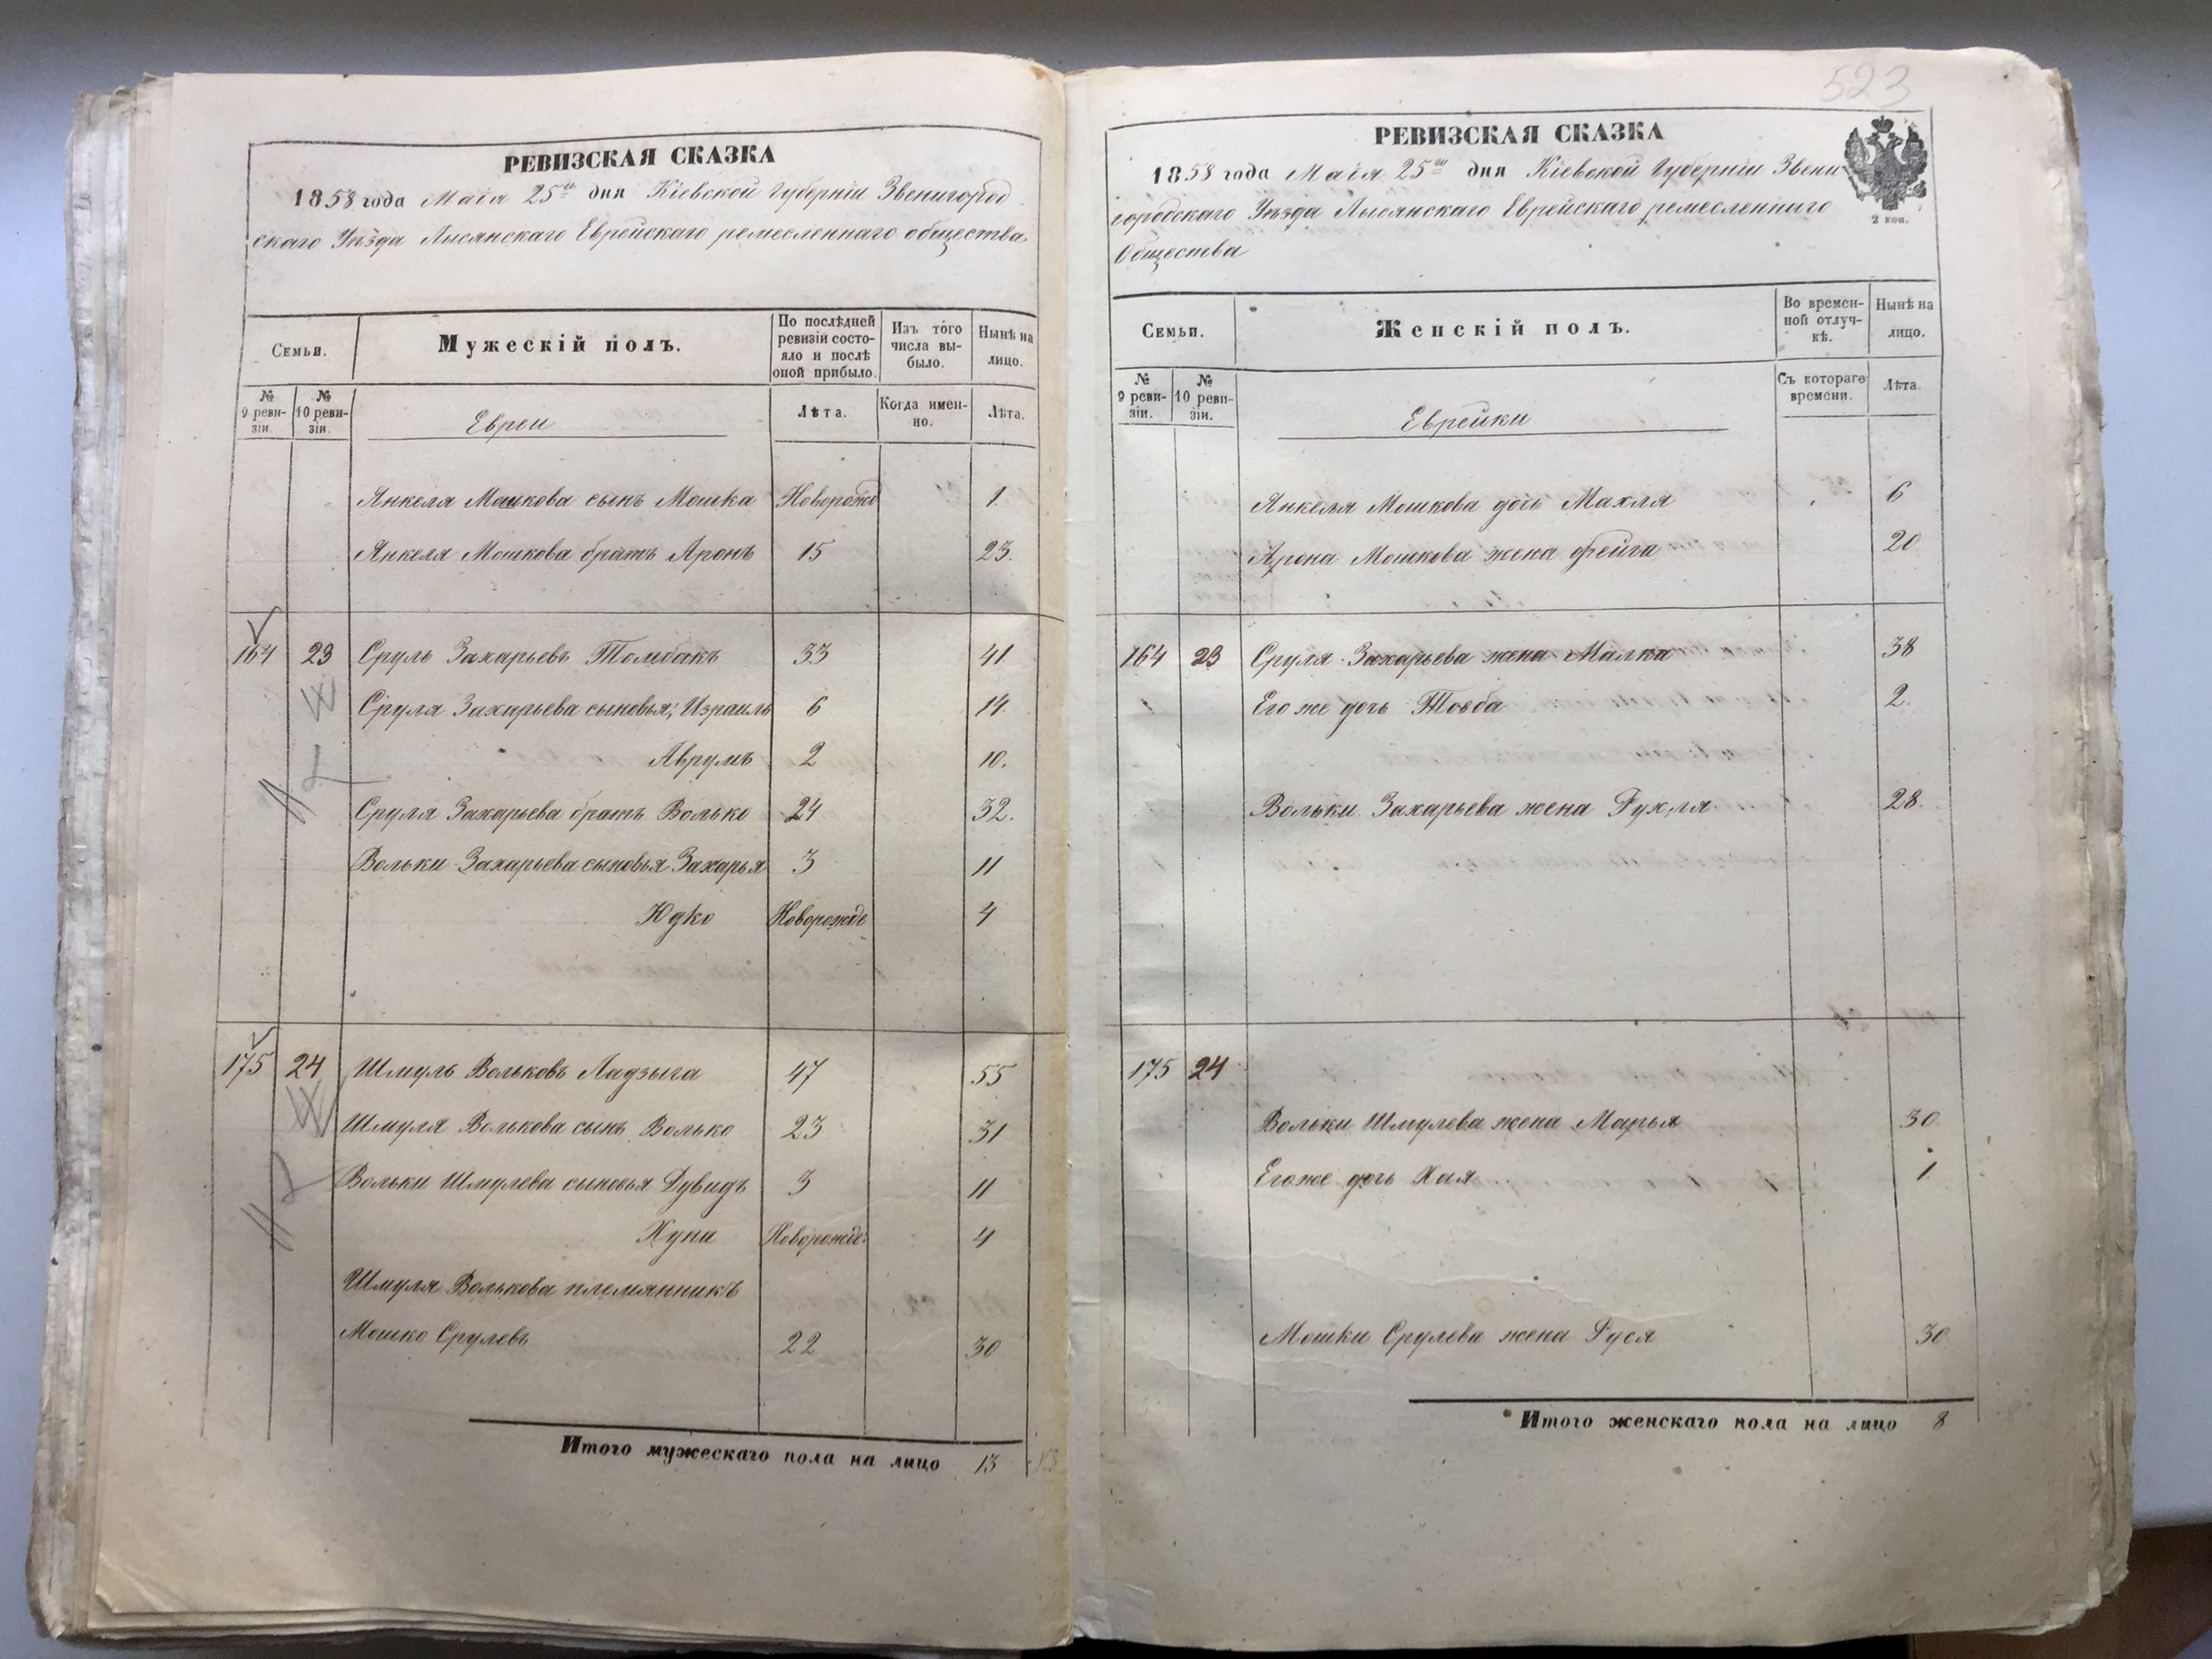 РЕВИЗСКАЯ СКАЗКА
1858 года Маія 25го дня Кіевской Губерніи Звенигород
скаго Уѣзда Лысянскаго Еврейскаго ремесленнаго общества
Семьи.
Мужескій полъ.
По послѣдней ревизіи состо-
яло и послѣ
оной прибыло.
Изъ того
числа вы-
было.
Нынѣ на
лицо.
№ 9 реви-
зіи.
№ 10 реви-
зіи.
Евреи
Лѣта.
Когда имен-
но.
Лѣта.
Янкеля Мошкова сынъ Мошка Новорожд 1.
Янкеля Мошкова братъ Аронъ 15 23.
164 23 Сруль Захарьевъ Томбакъ 33 41
Сруля Захарьева сыновья; Израиль 6 14
Аврумъ 2 10.
Сруля Захарьева братъ Волько 24 32.
Вольки Захарьева сыновья Захарья 3 11
Юдко Новорожде 4
175 24 Шмуль Вольковъ Ладзыга 47 55
Шмуля Волькова сынъ Волько 23 31
Вольки Шмулева сыновья Дувидъ 3 11
Хуна Новорожде: 4
Шмуля Волькова племянникъ
Мошко Срулевъ 22 30
Итого мужескаго пола на лицо 13
523
РЕВИЗСКАЯ СКАЗКА
1858 года Маія 25го дня Кіевской Губерніи Звени
городскаго Уѣзда Лысянскаго Еврейскаго ремесленнаго
Общества
2 коп.
Семьи.
Женскій полъ.
Во времен-
ной отлуч-
кѣ.
Нынѣ на
лицо.
№ 9 реви-
зіи.
№ 10 реви-
зіи.
Еврейки
Съ котораго
времени.
Лѣта.
Янкеля Мошкова дочь Махля 6
Арона Мошкова жена Фейга 20
164 23 Сруля Захарьева жена Малка 38
Его же дочь Товба 2.
Вольки Захарьева жена Рухля 28.
175 24
Вольки Шмулева жена Марья 30.
Его же дочь Хая 1
Мошки Срулева жена Руся 30
Итого женскаго пола на лицо 8